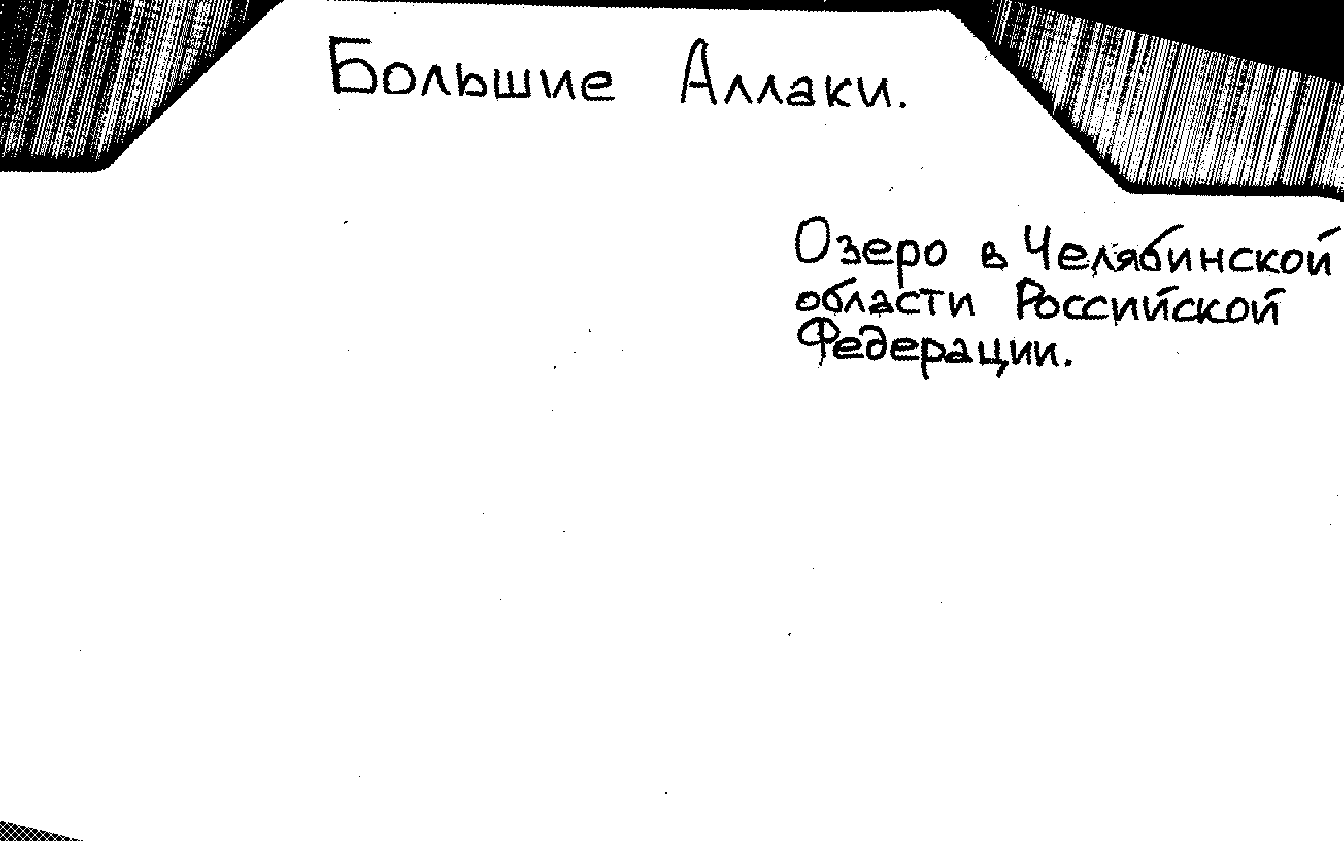 Большие Аллаки.
Озеро в Челябинской
области Российской
Федерации.